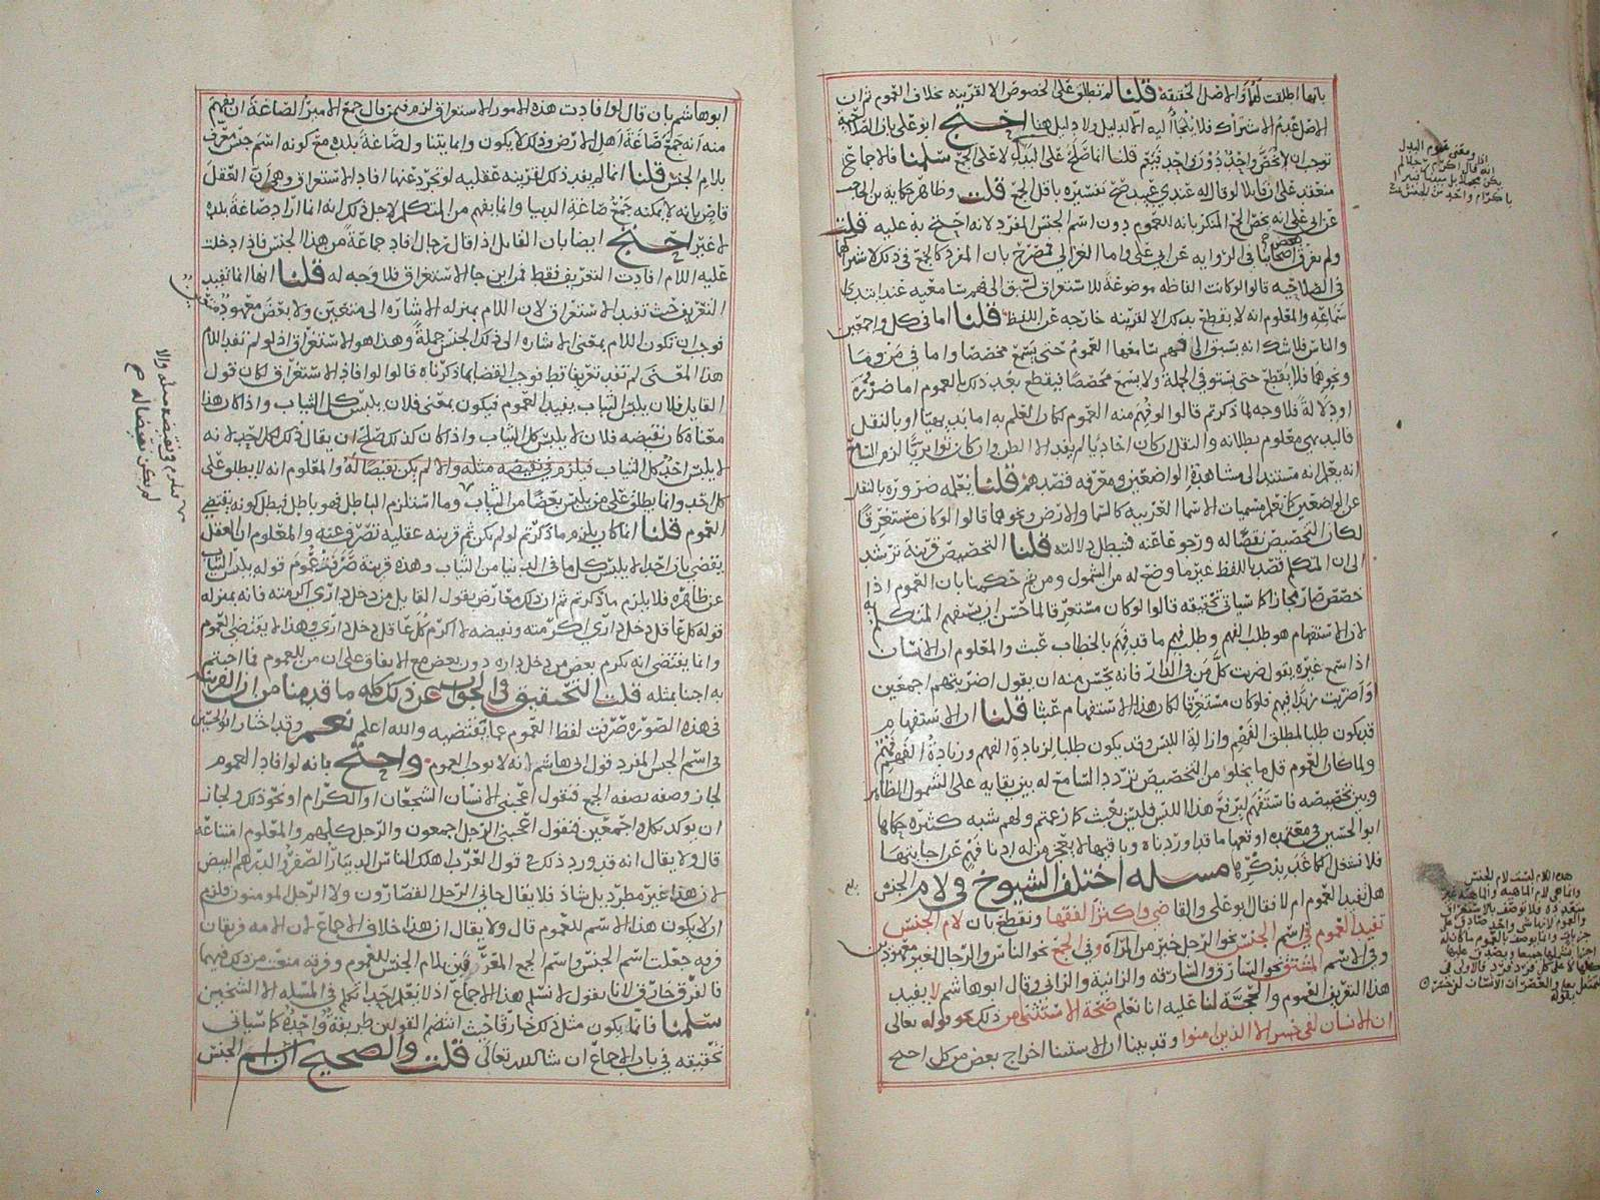 بانها اطلقت لها والاصل الحقيقة قلنا لم تطلق على الخصوص الا لقرينه بخلاف العموم ثم ان
الاصل عدم الاشتراك فلا يلجأ اليه الا لدليل ولا دليل هنا احتج ابو علي بان الصلاحية
توجب ان لا يخص واحد دون واحد فيعم قلنا انما صلح على البدل لا على الجمع سلمنا فالاجماع
منعقد على ان قايلا لو قال له عندي عبيد صح تفسيره باقل الجمع قلت وظاهر حكاية بن الحاجب
عن ابي علي انه يخص الجمع المنكر بانه للعموم دون اسم الجنس المفرد لانه احتج به عليه قلت
ولم يفرق بعض اصحابنا في الروايه عن ابي علي واما الغزالي فمصرح بان المفرد كالجمع في ذلك لاشتراكهما
في الصلاحيه قالوا لو كانت الفاظه موضوعة للاستغراق لسبق الى فهم سامعيه عند ابتدا
سماعه والمعلوم انه لا يقطع بذلك الا لقرينه خارجه عن اللفظ قلنا اما في كل واجمعين
والناس فلا شك انه يسبق الى فهم سامعها العموم حتى يسمع مخصصا واما في من وما
ونحوهما فلا يقطع حتى يستوفي الجملة ولا يسمع مخصصا فيقطع بعد ذلك بالعموم اما ضرورة
او دلالة فلا وجه لما ذكرتم قالوا لو فهم منه العموم لكان العلم به اما بديهيا او بالنقل
فالبديهي معلوم بطلانه والنقل ان كان احاديا لم يفد الا الظن وان كان تواتريا لزم السامع
انه يعلم انه مستند الى مشاهدة الواضعين ومعرفه قصدهم قلنا نعلمه ضرورة بالنقل
عن الواضعين كما نعلم مسميات الاسما الغريبه كالسما والارض ونحوهما قالوا لو كان مستغرقا
لكان التخصيص نقضا له ورجوعا عنه فتبطل دلالته قلنا التخصيص قرينة ترشد
الى ان المتكلم قصد باللفظ غير ما وضع له من الشمول ومن ثم حكمنا بان العموم اذا
خصص صار مجازا كما سياتي تحقيقه قالوا لو كان مستغرقا لما حسن ان يستفهم المتكلم به
لان الاستفهام هو طلب الفهم وطلب فهم ما قد فهم بالخطاب عبث والمعلوم ان الانسان
اذا سمع غيره يقول ضربت كل من في الدار فانه يحسن منه ان يقول اضربتهم اجمعين
او اضربت زيدا فيهم فلو كان مستغرقا لكان هذا الاستفهام عبثا قلنا ان الاستفهام
قد يكون طلبا لمطلق الفهم وازالة اللبس وقد يكون طلبا لزيادة الفهم وزيادة الفهم
ولما كان العموم قل ما يخلو من التخصيص تردد السامع له بين بقايه على الشمول الظاهر
وبين تخصيصه فاستفهم ليرتفع هذا اللبس فليس بعبث كما زعمتم ولهم شبه كثيره حكاها
ابو الحسين في معتمده اوقعها ما قد اوردناه وباقيها لا يعجز من له ادنا فهم عن اجابتها
فلا نشتغل كما عد بذكرها مسله اختلف الشيوخ في لام الجنس
هل تفيد العموم ام لا فقال ابو علي والقاضي واكثر الفقها ونقطع بان لام الجنس
تفيد العموم في اسم الجنس نحو الرجل خير من المرأة وفي الجمع نحو الناس والرجال لغير معهودين
وفي الاسم المشتق نحو السارق والسارقه والزانية والزاني وقال ابو هاشم لا يفيد
هذا التعريف العموم والحجة لنا عليه انا نعلم صحة الاستثنا من ذلك نحو قوله تعالى
ان الانسان لفي خسر الا الذين امنوا وقد بينا ان الاستثنا اخراج بعض من كل احتج
ومعنى عموم البدل
هذه اللام ليست لام الجنس
وانما هي لام الماهية والماهية غير
ابو هاشم بان قال لو افادت هذه الامور الاستغراق لزم فيمن قال جمع الامير الصاغة ان يفهم
منه انه جمع صاغة اهل الارض وذلك لا يكون وانما يتناول صاغة بلده مع كونه اسم جنس معرف
بلام الجنس قلنا انما لم يفد ذلك لقرينه عقليه لو تجرد عنها افاد الاستغراق وهي ان العقل
قاض بانه لا يمكنه جمع صاغة الدنيا وانما يفهم من المتكلم لاجل ذلك انه انما اراد صاغة بلده
لا غير احتج ايضا بان القايل اذا قال رجال افاد جماعة من هذا الجنس فاذا دخلت
عليه اللام افادت التعريف فقط فمن اين جا الاستغراق فلا وجه له قلنا انها انما تفيد
التعريف حيث تفيد الاستغراق لان اللام بمنزله الاشاره الى متعين ولا بعض معهود متعين
فوجب ان تكون اللام بمعنى الاشاره الى ذلك الجنس جملة وهذا هو الاستغراق اذ لو لم تفد اللام
هذا المعنى لم تفد تعريفا قط فوجب القضا بما ذكرناه قالوا لو افاد الاستغراق لكان قول
القايل فلان يلبس الثياب يفيد العموم فيكون بمعنى فلان يلبس كل الثياب واذا كان هذا
معناه كان نقيضه فلان لا يلبس كل الثياب واذا كان كذلك صلح ان يقال ذلك لكل احد لانه
لا يلبس احد كل الثياب فيلزم في نقيضه مثله والا لم يكن نقيضا له والمعلوم انه لا يطلق على
كل احد وانما يطلق على من يلبس بعضا من الثياب وما استلزم الباطل فهو باطل فبطل كونه يقتضي
العموم قلنا انما كان يلزم ما ذكرتم لو لم يكن ثم قرينه عقليه تصرف عنه والمعلوم ان العقل
يقضي بان احدا لا يلبس كل ما في الدنيا من الثياب وهذه قرينة صرفت عموم قوله يلبس الثياب
عن ظاهره فلا يلزم ما ذكرتم ثم ان ذلك معارض بقول القايل من دخل داري اكرمته فانه بمنزله
قوله كل عاقل دخل داري اكرمته ونقيضه لا اكرم كل عاقل دخل داري وهذا لا يقتضي العموم
وانما يقتضي انه يكرم بعض من دخل داره دون بعض مع الاتفاق على ان من للعموم فما اجبتم
به اجبنا بمثله قلت التحقيق في الجواب عن ذلك كله ما قدمنا من ان القرينة
في هذه الصوره صرفت لفظ العموم عما يقتضيه والله اعلم نعم وقد اختار ابو الحسين
في اسم الجنس المفرد قول ابي هاشم انه لا يوجب العموم واحتج بانه لو افاد العموم
لجاز وصفه بصفه الجمع فتقول اعجبني الانسان الشجعان او الكرام او نحو ذلك ولجاز
ان يوكد بكل واجمعين فتقول اعجبني الرجل اجمعون والرجل كلهم والمعلوم امتناعه
قال ولا يقال انه قد ورد ذلك في قول العرب اهلك الناس الدينار الصفر والدرهم البيض
لان هذا غير مطرد بل شاذ فلا يقال جاني الرجل القصارون ولا الرجل المومنون فلزم
ان لا يكون هذا الاسم للعموم قال ولا يقال ان هذا خلاف الاجماع لان الامه فريقان
فرقه جعلت اسم الجنس واسم الجمع المعرفين بلام الجنس للعموم وفرقه منعت من ذلك فيهما
فالفرق خارق لانا نقول لا نسلم هذا الاجماع اذ لا نعلم احدا تكلم في المسله الا الشيخين
سلمنا فانما يكون مثل ذلك خارقا حيث انتظم القولين طريقة واحدة كما سياتي
تحقيقه في باب الاجماع ان شا الله تعالى قلت والصحيح ان اسم الجنس